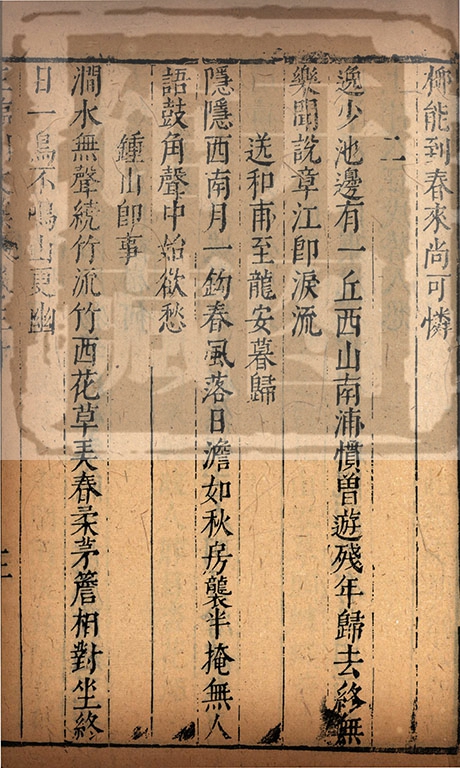 娜能到春來尚可憐
二
逸少池邊有一丘西山南浦慣曾遊殘年歸去終無
樂聞說章江卽淚流
送和甫至龍安暮歸
隱隱西南月一鈎春風落日澹如秋房襲半掩無人
語鼓角聲中始欲愁
鍾山卽事
澗水無聲繞竹流竹西花草弄春柔茅簷相對坐終
日一鳥不鳴山更幽